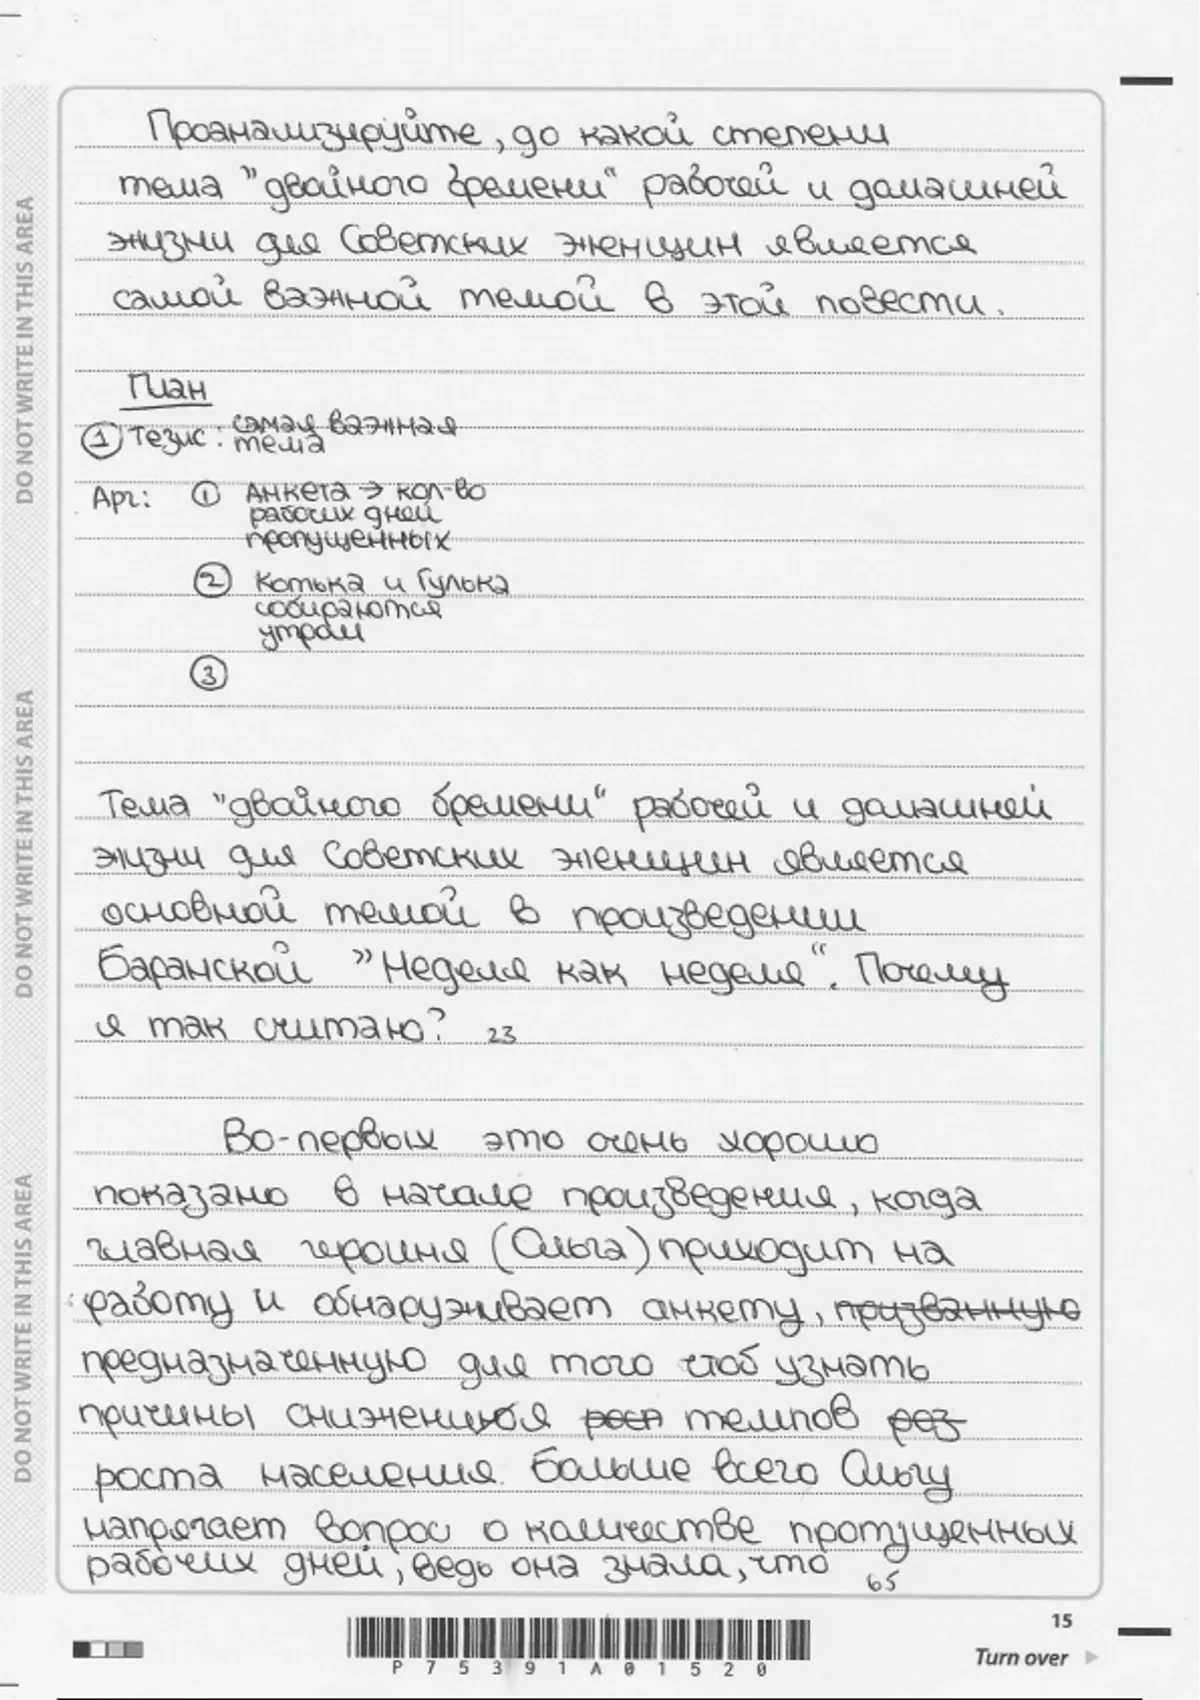 Проанализируйте, до какой степени
тема "двойного бремени" рабочей и домашней
жизни для Советских женщин является
самой важной темой в этой повести.
План
① Тезис: самая важная
тема
Арг: ① Анкета → кол-во
рабочих дней
пропущенных
② Котька и Гулька
собираются
утром
③
Тема "двойного бремени" рабочей и домашней
жизни для Советских женщин является
основной темой в произведении
Баранской "Неделя как неделя". Почему
я так считаю? 23
Во-первых это очень хорошо
показано в начале произведения, когда
главная героиня (Ольга) приходит на
работу и обнаруживает анкету, призванную
предназначенную для того чтоб узнать
причины снижения темпов
роста населения. Больше всего Ольгу
напрягает вопрос о количестве пропущенных
рабочих дней, ведь она знала, что
65
DO NOT WRITE IN THIS AREA
DO NOT WRITE IN THIS AREA
DO NOT WRITE IN THIS AREA
P75391A01520
15
Turn over